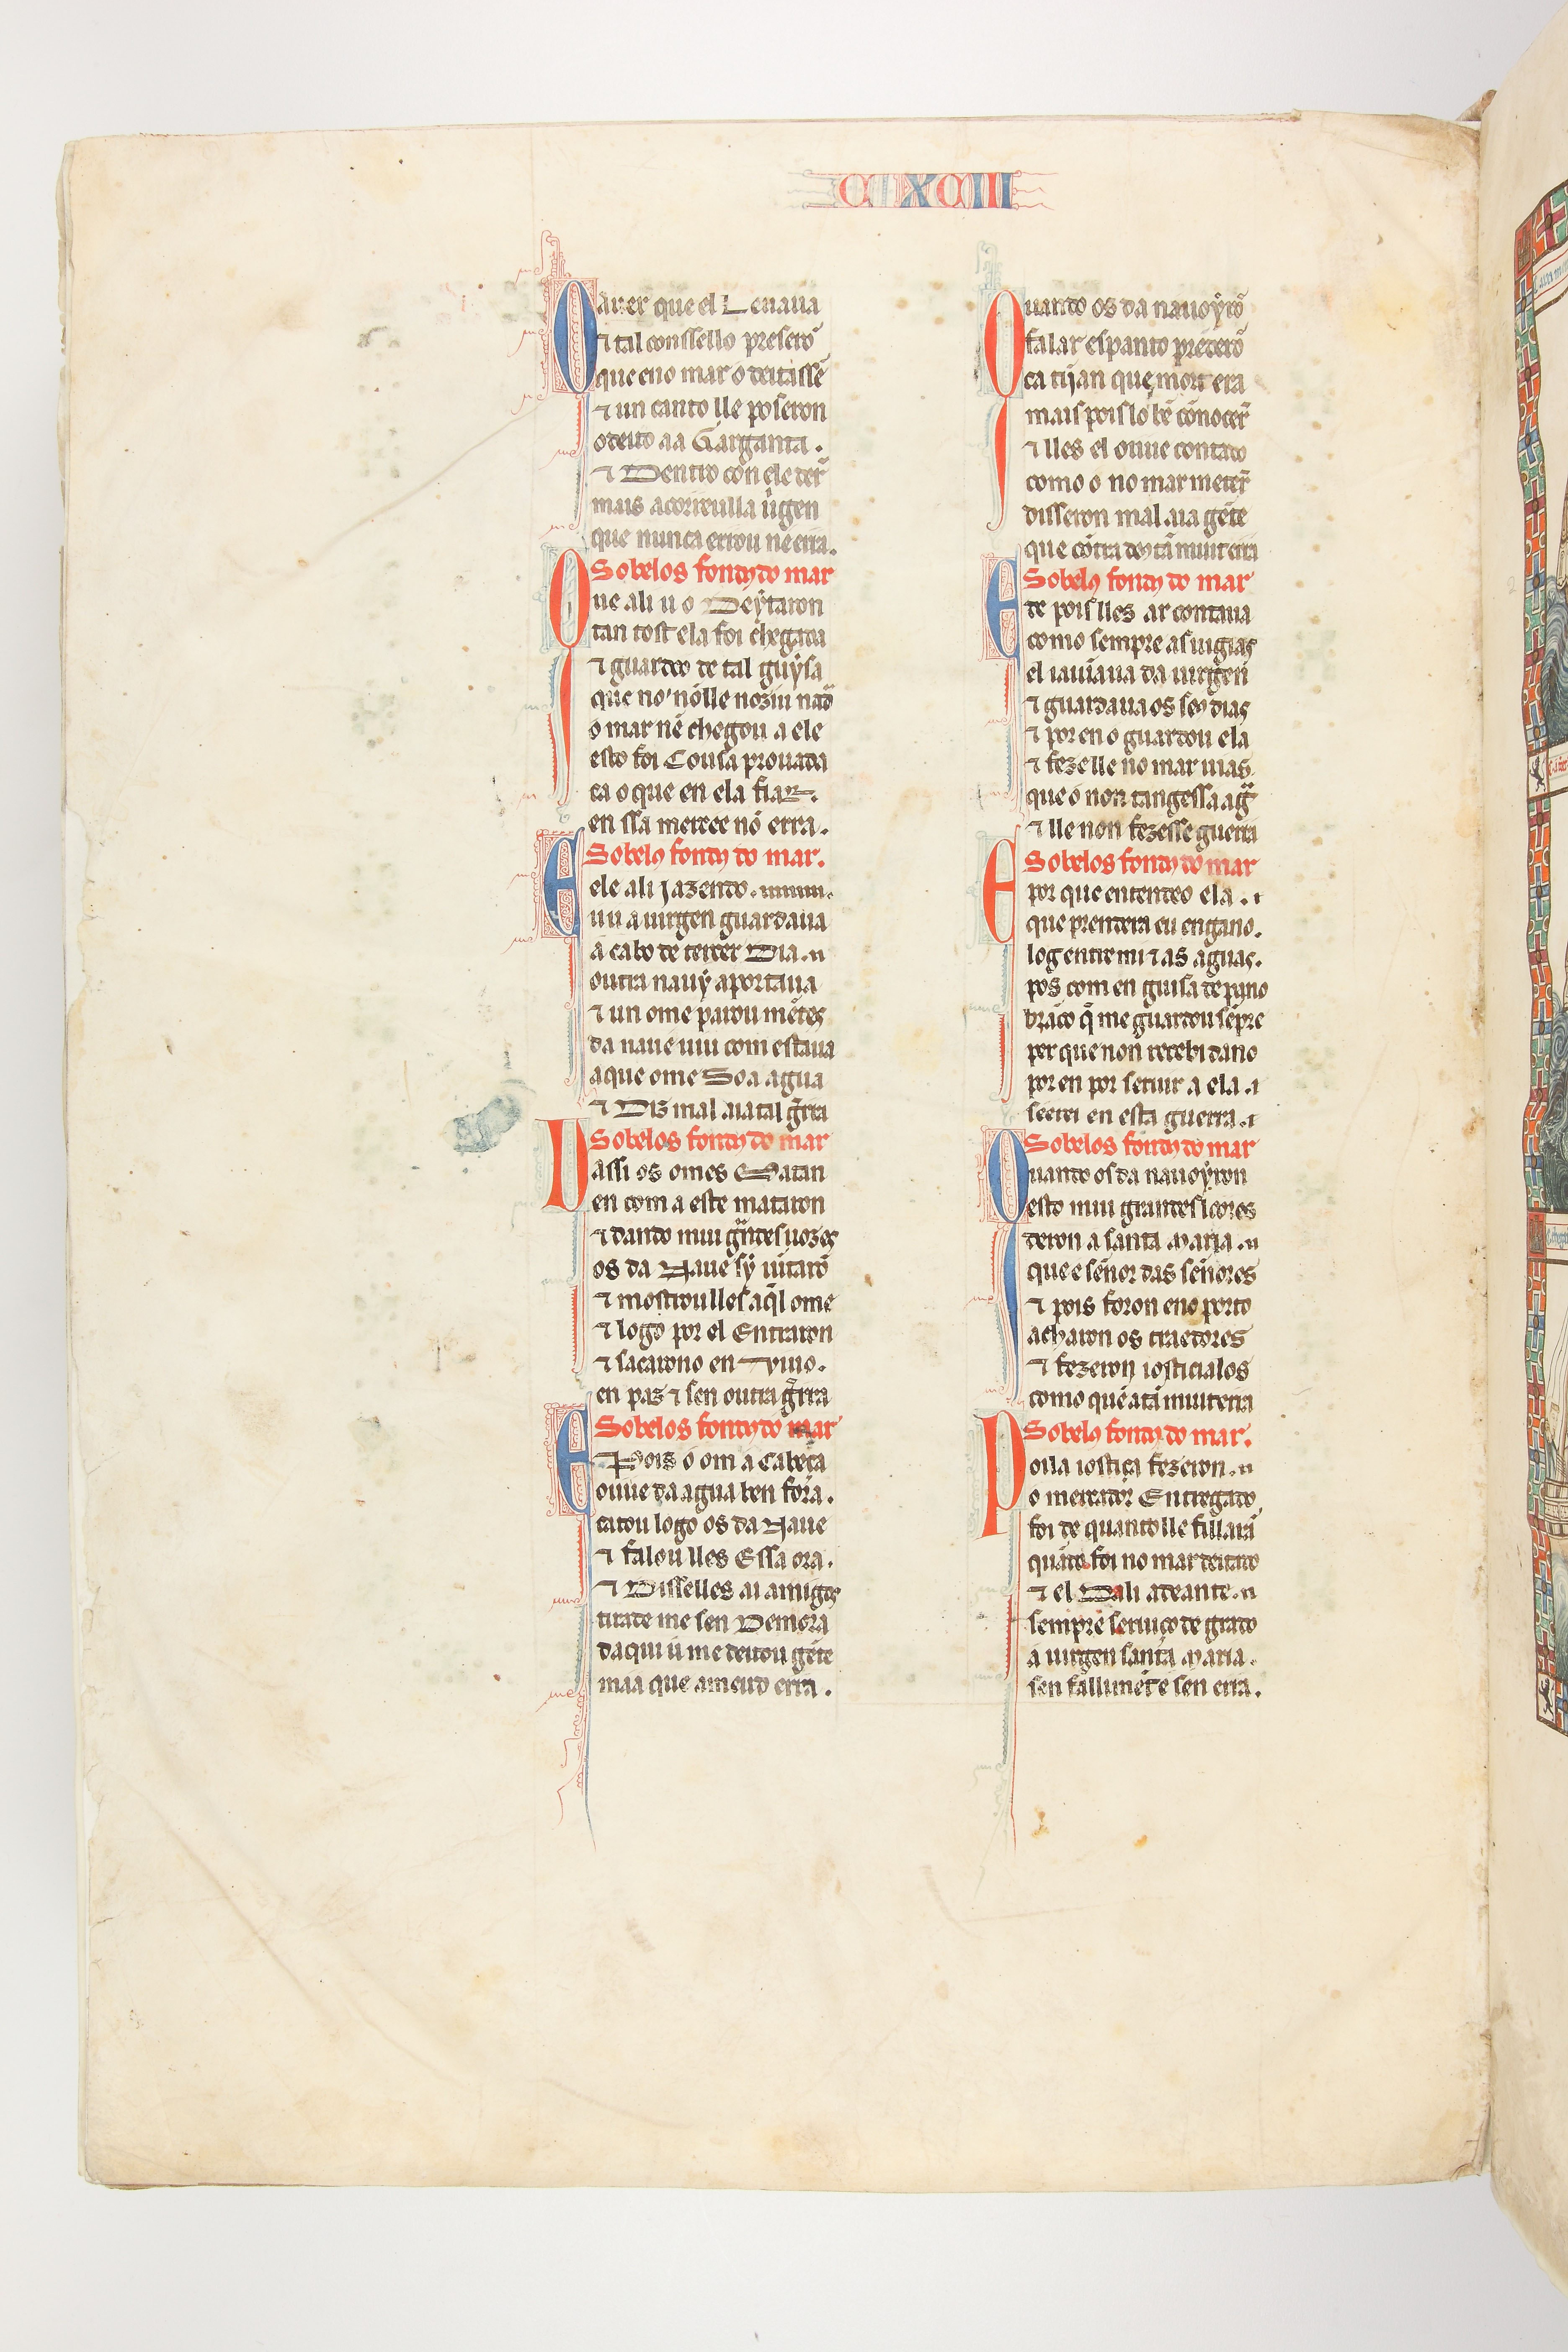 CLXCIII
O auer que el Leuaua
⁊ tal conssello preserõ
que eno mar o deitassẽ
⁊ un canto lle poseron
o deito aa Garganta.
⁊ Dentro cõn ele derõ
mais acorreulla uirgen
que nunca errou nẽ erra.
Sobelos fondos do mar
Que ali u o Deẏtaron
tan tost ela foi chegada
⁊ guardeo de tal guẏsa
que no' nõlle noziu nada
o mar nẽ chegou a ele
esto foi Cousa prouada
ca o que en ela fiar.
en ssa mercee nõ erra.
Sobelos fondos do mar.
E ele ali jazendo.
uu a uirgen guardaua
a cabo de tercer Dia.
outra nauẏ aportaua
⁊ un ome parou mẽtes
da naue uiu com estaua
aque ome Soa agua
⁊ Diz mal aia tal g̃rra
Sobelos fondos do mar
D assi os omes Matan
en com a este mataron
⁊ dando mui g̃ndes uozes
os da Naue sẏ uirarõ
⁊ mostroulles aq̃l ome
⁊ logo por el Entraron
⁊ sacarono en Viuo.
en paz ⁊ sen outra g̃rra
Sobelos fondos do mar
E Pois o om a Cabeça
ouue da agua ben fora.
catou logo os da Naue
⁊ falou lles Essa ora.
⁊ Disselles ai amigos
tirade me sen Demora
daqui u me deitou gẽte
maa que ameudo erra.
Quando os da nauoẏrõ
falar espanto prederõ
ca tijan que mort era
mais poislo bẽ cõnocerõ
⁊ lles el ouue contado
como o no mar meterõ
disseron mal aia gẽte
que cõtra deus tã muit erra
Sobelos fondos do mar
E de pois lles ar contaua
como sempre as uigias
el iaiũaua da uirgen
⁊ guardaua os seus dias
⁊ por en o guardou ela
⁊ fezelle no mar uias.
que o non tangess a agua
⁊ lle non fezesse guerra
Sobelos fondos do mar
E por que entendeo ela.
que prendera eu engano.
log entre mi ⁊ as aguas.
pos com en guisa de pano
braco q̃ me guardou sẽpre
per que non recebi dano
por en por seruir a ela.
seerei en esta guerra.
Sobelos fondos do mar
Quando os da nauoẏron
esto mui grandes loores
deron a santa Maria.
que e señor das señores
⁊ pois foron eno porto
acharon os traedores
⁊ fezeron iosticialos
como quẽ atã muit erra
Sobelos fondos do mar.
Poila iostiça fezeron.
o mercador Entregado,
foi de quanto lle fillarã
quãdo foi no mar deitado
⁊ el Dali adeante.
sempre seruiço de grado
a uirgen santa Maria.
sen fallimẽt e sen erra.